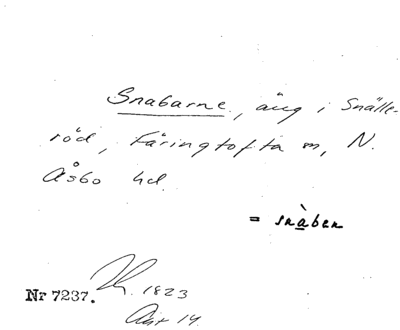 Snabarne, äng i Snälle-
röd, Färingtofta sn, N.
Åsbo hd.
= snàben
Nr 7237. 1823
Akt 14